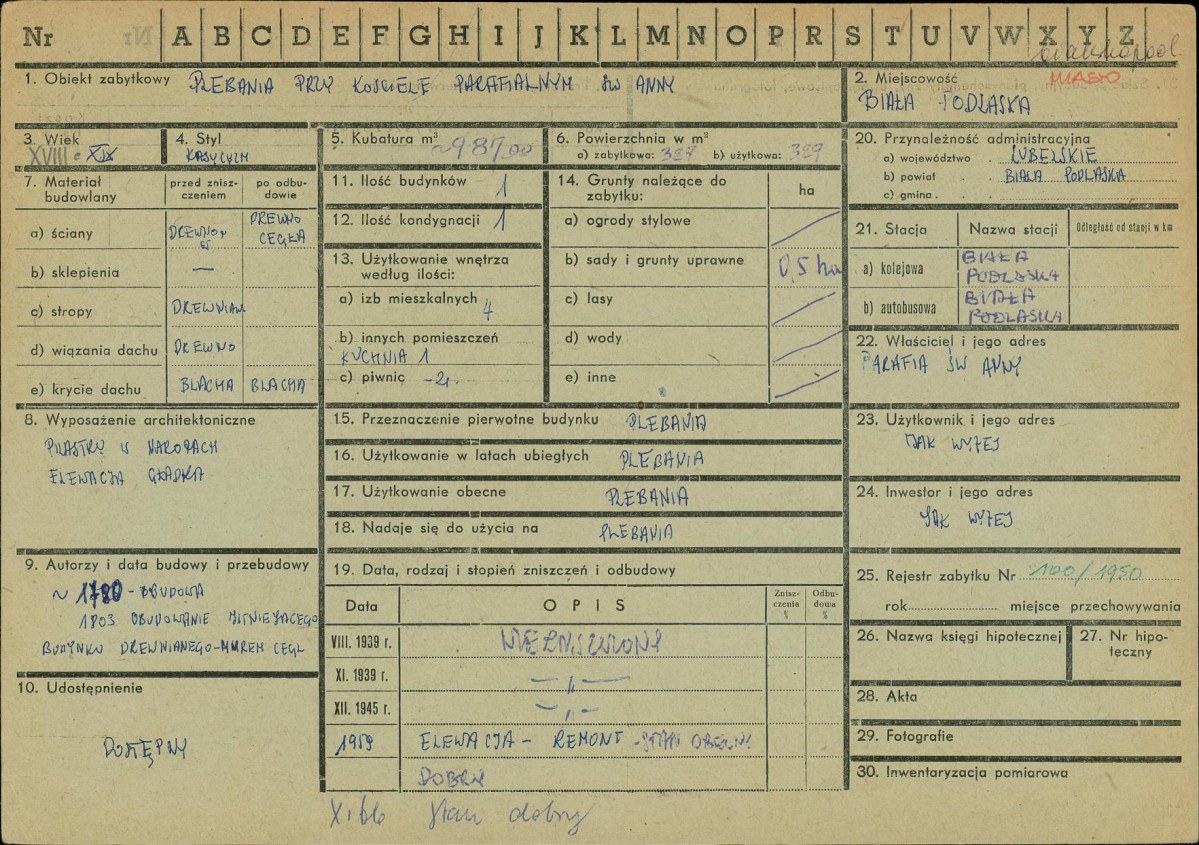 Nr A B C D E F G H I J K L M N O P R S T U V W X Y Z
1. Obiekt zabytkowy PLEBANIA PRZY KOŚCIELE PARAFIALNYM ŚW ANNY
2. Miejscowość MIASTO
BIAŁA PODLASKA
3. Wiek
XVIII - XIX
4. Styl
KLASYCYZM
5. Kubatura m³ ~987,00
6. Powierzchnia w m²
a) zabytkowa: 329 b) użytkowa: 329
7. Materiał budowlany
przed zniszczeniem
po odbudowie
a) ściany DREWNO DREWNO CEGŁA
b) sklepienia —
c) stropy DREWNIAN
d) wiązania dachu DREWNO
e) krycie dachu BLACHA BLACHA
8. Wyposażenie architektoniczne
PILASTRY W NAROŻACH
ELEWACJA GŁADKA
9. Autorzy i data budowy i przebudowy
~ 1780 - BUDOWA
1803 OBUDOWANIE ISTNIEJĄCEGO
BUDYNKU DREWNIANEGO-MUREM CEGL
10. Udostępnienie
DOSTĘPNY
11. Ilość budynków 1
12. Ilość kondygnacji 1
13. Użytkowanie wnętrza
według ilości:
a) izb mieszkalnych 4
b) innych pomieszczeń
KUCHNIA 1
c) piwnic -2.
14. Grunty należące do
zabytku:
ha
a) ogrody stylowe
b) sady i grunty uprawne 0,5 ha
c) lasy
d) wody
e) inne
15. Przeznaczenie pierwotne budynku PLEBANIA
16. Użytkowanie w latach ubiegłych PLEBANIA
17. Użytkowanie obecne PLEBANIA
18. Nadaje się do użycia na PLEBANIA
19. Data, rodzaj i stopień zniszczeń i odbudowy
Data OPIS Zniszczenia % Odbudowa %
VIII. 1939 r. NIEZNISZCZONY
XI. 1939 r. — „ —
XII. 1945 r. — „ —
1959 ELEWACJA - REMONT - STAN OBECNY
DOBRY
XI 66 Stan dobry
20. Przynależność administracyjna
a) województwo . LUBELSKIE
b) powiat . BIAŁA PODLASKA
c) gmina .
21. Stacja Nazwa stacji Odległość od stacji w km
a) kolejowa BIAŁA
PODLASKA
b) autobusowa BIAŁA
PODLASKA
22. Właściciel i jego adres
PARAFIA ŚW ANNY
23. Użytkownik i jego adres
JAK WYŻEJ
24. Inwestor i jego adres
JAK WYŻEJ
25. Rejestr zabytku Nr 100/1950
rok miejsce przechowywania
26. Nazwa księgi hipotecznej
27. Nr hipoteczny
28. Akta
29. Fotografie
30. Inwentaryzacja pomiarowa